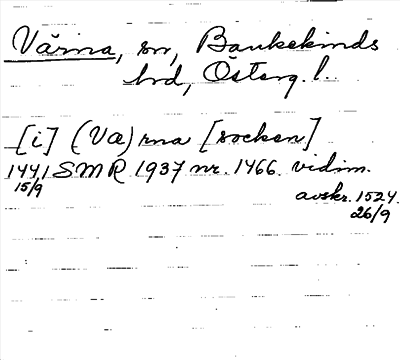 Värna, sn, Bankekinds
hrd, Österg. l.
[i] (Væ)rna [socken]
1441 SMR 1937 nr. 1466. vidim.
15/9
avskr. 1524.
26/9